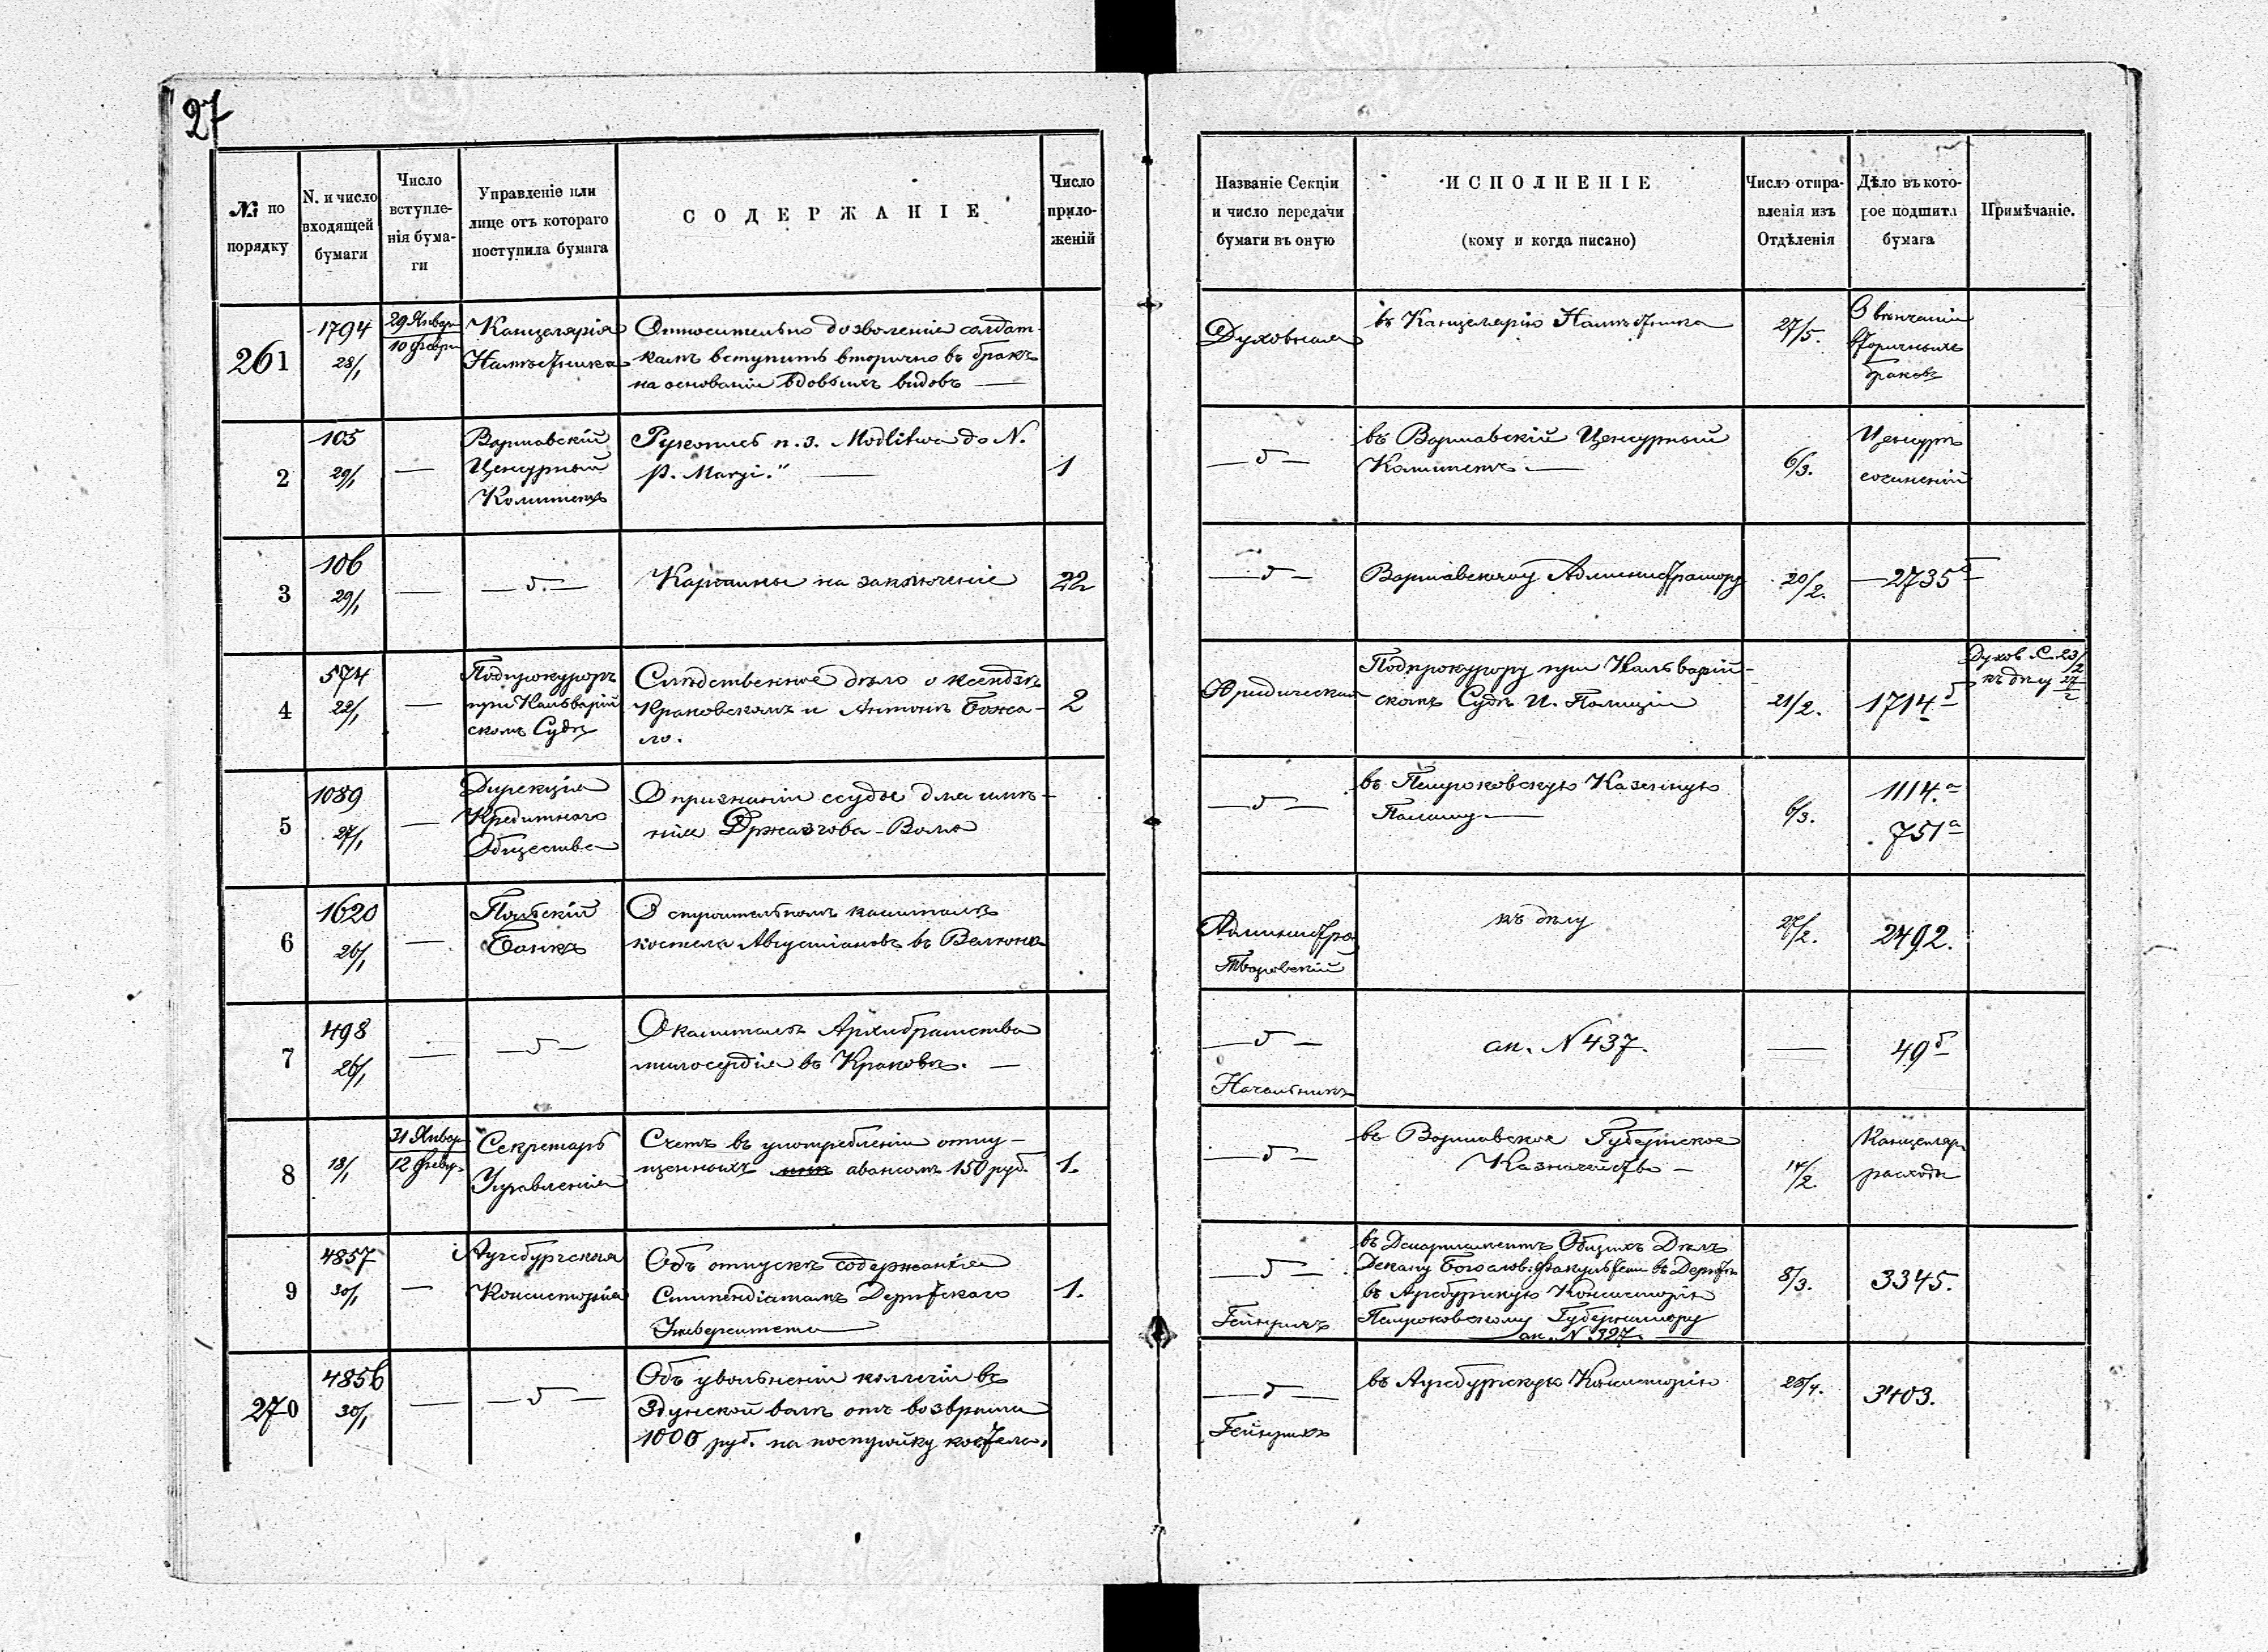 27
№ по порядку
N. и число входящей бумаги
Число вступле-
нія бума-
ги
Управленіе или
лице отъ котораго
поступила бумага
СОДЕРЖАНІЕ
Число
прило-
женій
Названіе Секціи
и число передачи
бумаги въ оную
ИСПОЛНЕНІЕ
(кому и когда писано)
Число отпра-
вленія изъ
Отдѣленія
Дѣло въ кото-
рое подшита
бумага
Примѣчаніе.
261
1794
28/1
29 Январ
10 Февр
Канцелярія
Намѣстника
Относительно дозволенія солдат-
камъ вступить вторично въ бракъ
на основаніи вдовьихъ видовъ —
Духовная
въ Канцелярію Намѣстника
27/5.
О вѣнчаніи
вторичныхъ
браковъ
2
105
29/1
—
Варшавскій
Цензурный
Комитетъ
Рукопись п. з. Modlitwa do N.
P. Maryi." —
1
— δ —
въ Варшавскій Цензурный
Комитетъ. —
6/3.
Цензура
сочиненій
3
106
29/1
—
— δ. —
Картины на заключеніе
22
— δ —
Варшавскому Администратору
20/2.
— 2735 —
4
574
22/1
—
Подпрокуроръ
при Кальварій
скомъ Судѣ
Слѣдственное дѣло о ксендзѣ
Краковскомъ и Антонѣ Божа-
ло.
2
Юридическая
Подпрокурору при Кальварій-
скомъ Судѣ И. Полиціи
21/2.
1714 б
Духов. С. 23/2
къ дѣлу 27/2
5
1089
27/1
—
Дирекція
Кредитнаго
Общества
О признаніи ссуды для имѣ-
нія Држазгова-Воля
— δ —
въ Петроковскую Казенную
Палату —
6/3.
1114. а
751 а
6
1620
26/1
—
Польскій
Банкъ
О строительномъ капиталѣ
костела Августіановъ въ Велюнѣ
Администра
къ дѣлу
27/2.
2492.
7
498
26/1
—
— δ —
О капиталѣ Архибратства
милосердія въ Краковѣ. —
— δ —
Начальникъ
ан. N 437.
—
49 б
8
18/1
31 Январ
12 Февр.
Секретарь
Управленія
Счетъ въ употребленіи отпу-
щенныхъ авансомъ 150 руб.
1.
— δ —
въ Варшавское Губернское
Казначейство —
14/2
Канцеляр.
расходы
9
4857
30/1
—
Аугсбургская
Консисторія
Объ отпускѣ содержанія
Стипендіатамъ Дерптскаго
Университета —
1.
— δ —
Гейнрихъ
въ Департаментъ Общихъ Дѣлъ
Декану Богослов. факультета въ Дерптѣ
въ Аугсбургскую Консисторію
Петроковскому Губернатору
ан. N 327. —
8/3.
3345.
270
4856
30/1
—
— δ —
Объ увольненіи коллегіи въ
Здунской волѣ отъ возврата
1000 руб. на постройку костела.
— δ —
Гейнрихъ
въ Аугсбургскую Консисторію
25/4.
3403.